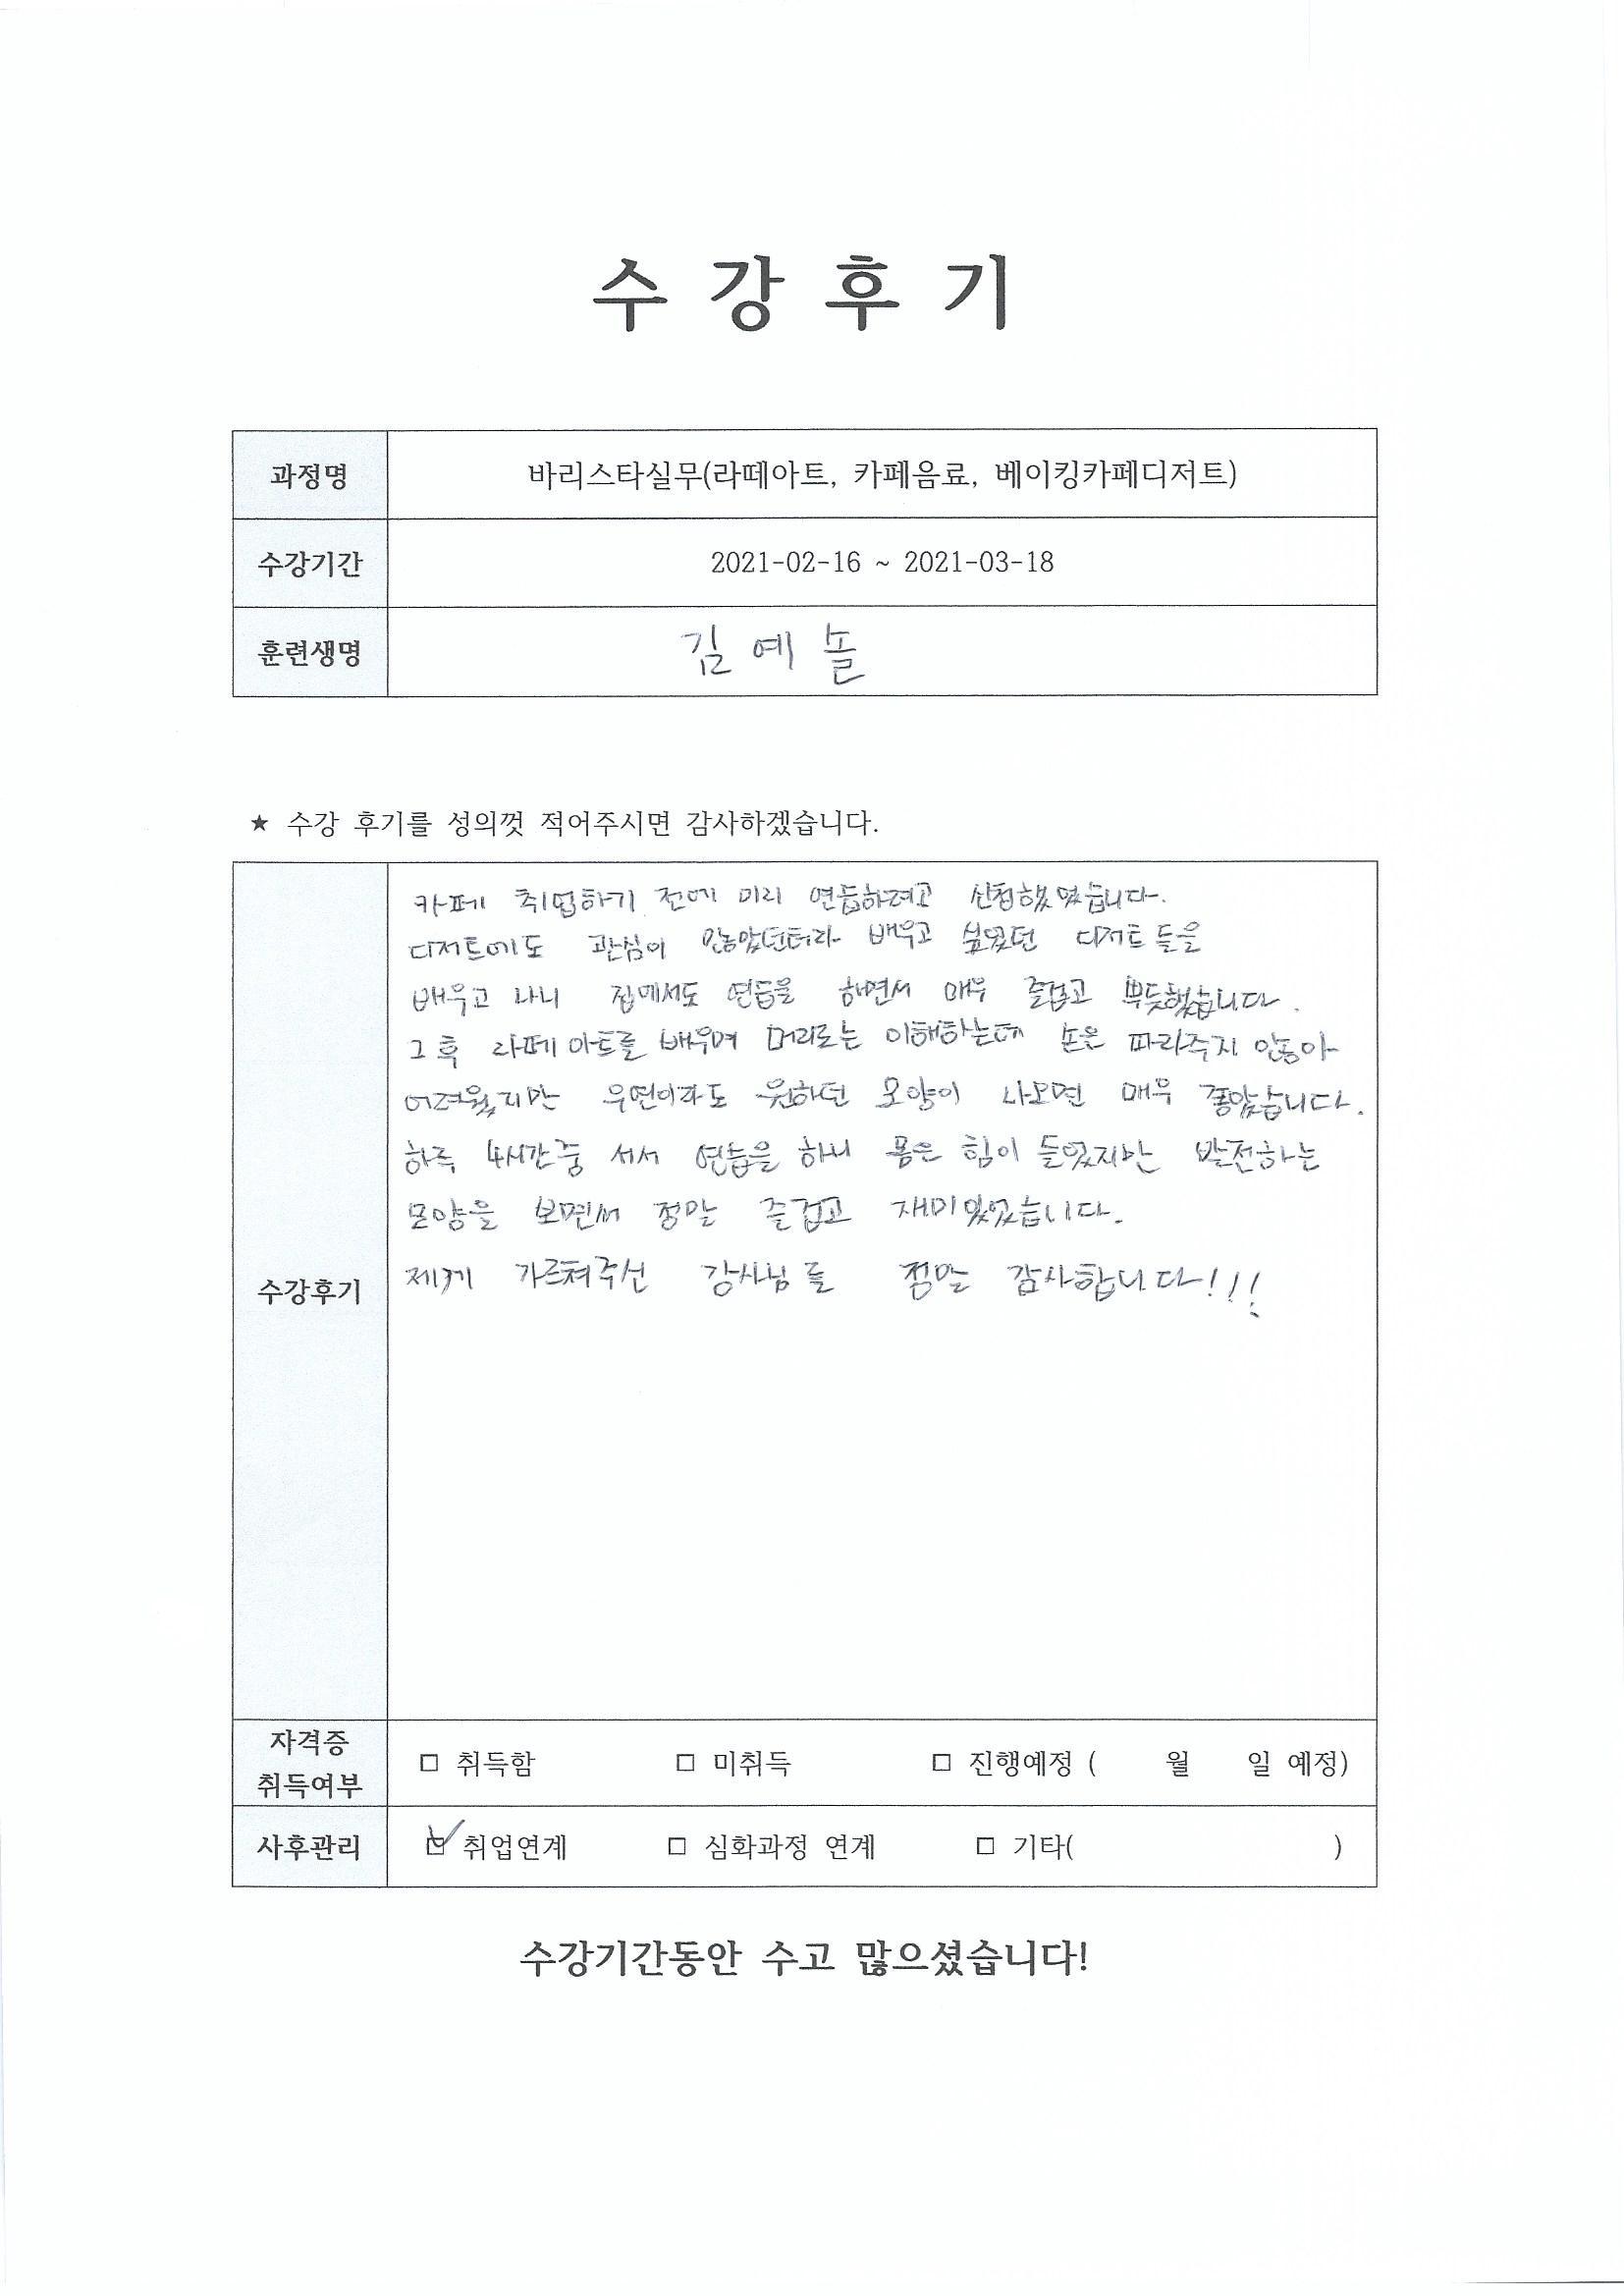 수 강 후 기
과정명 바리스타실무(라떼아트, 카페음료, 베이킹카페디저트)
수강기간 2021-02-16 ~ 2021-03-18
훈련생명 김 예 솔
★ 수강 후기를 성의껏 적어주시면 감사하겠습니다.
카페 취업하기 전에 미리 연습하려고 신청했었습니다.
디저트에도 관심이 많았던터라 배우고 싶었던 디저트들을
배우고 나니 집에서도 연습을 하면서 매우 즐겁고 뿌듯했습니다.
그 후 라떼아트를 배우며 머리로는 이해하는데 손은 따라주지 않아
어려웠지만 우연이라도 원하던 모양이 나오면 매우 좋았습니다.
하루 4시간중 서서 연습을 하니 몸은 힘이 들었지만 발전하는
모양을 보면서 정말 즐겁고 재미있었습니다.
수강후기 제게 가르쳐주신 강사님들 정말 감사합니다!!!
자격증
취득여부
□ 취득함 □ 미취득 □ 진행예정 ( 월 일 예정)
사후관리 ☑ 취업연계 □ 심화과정 연계 □ 기타( )
수강기간동안 수고 많으셨습니다!